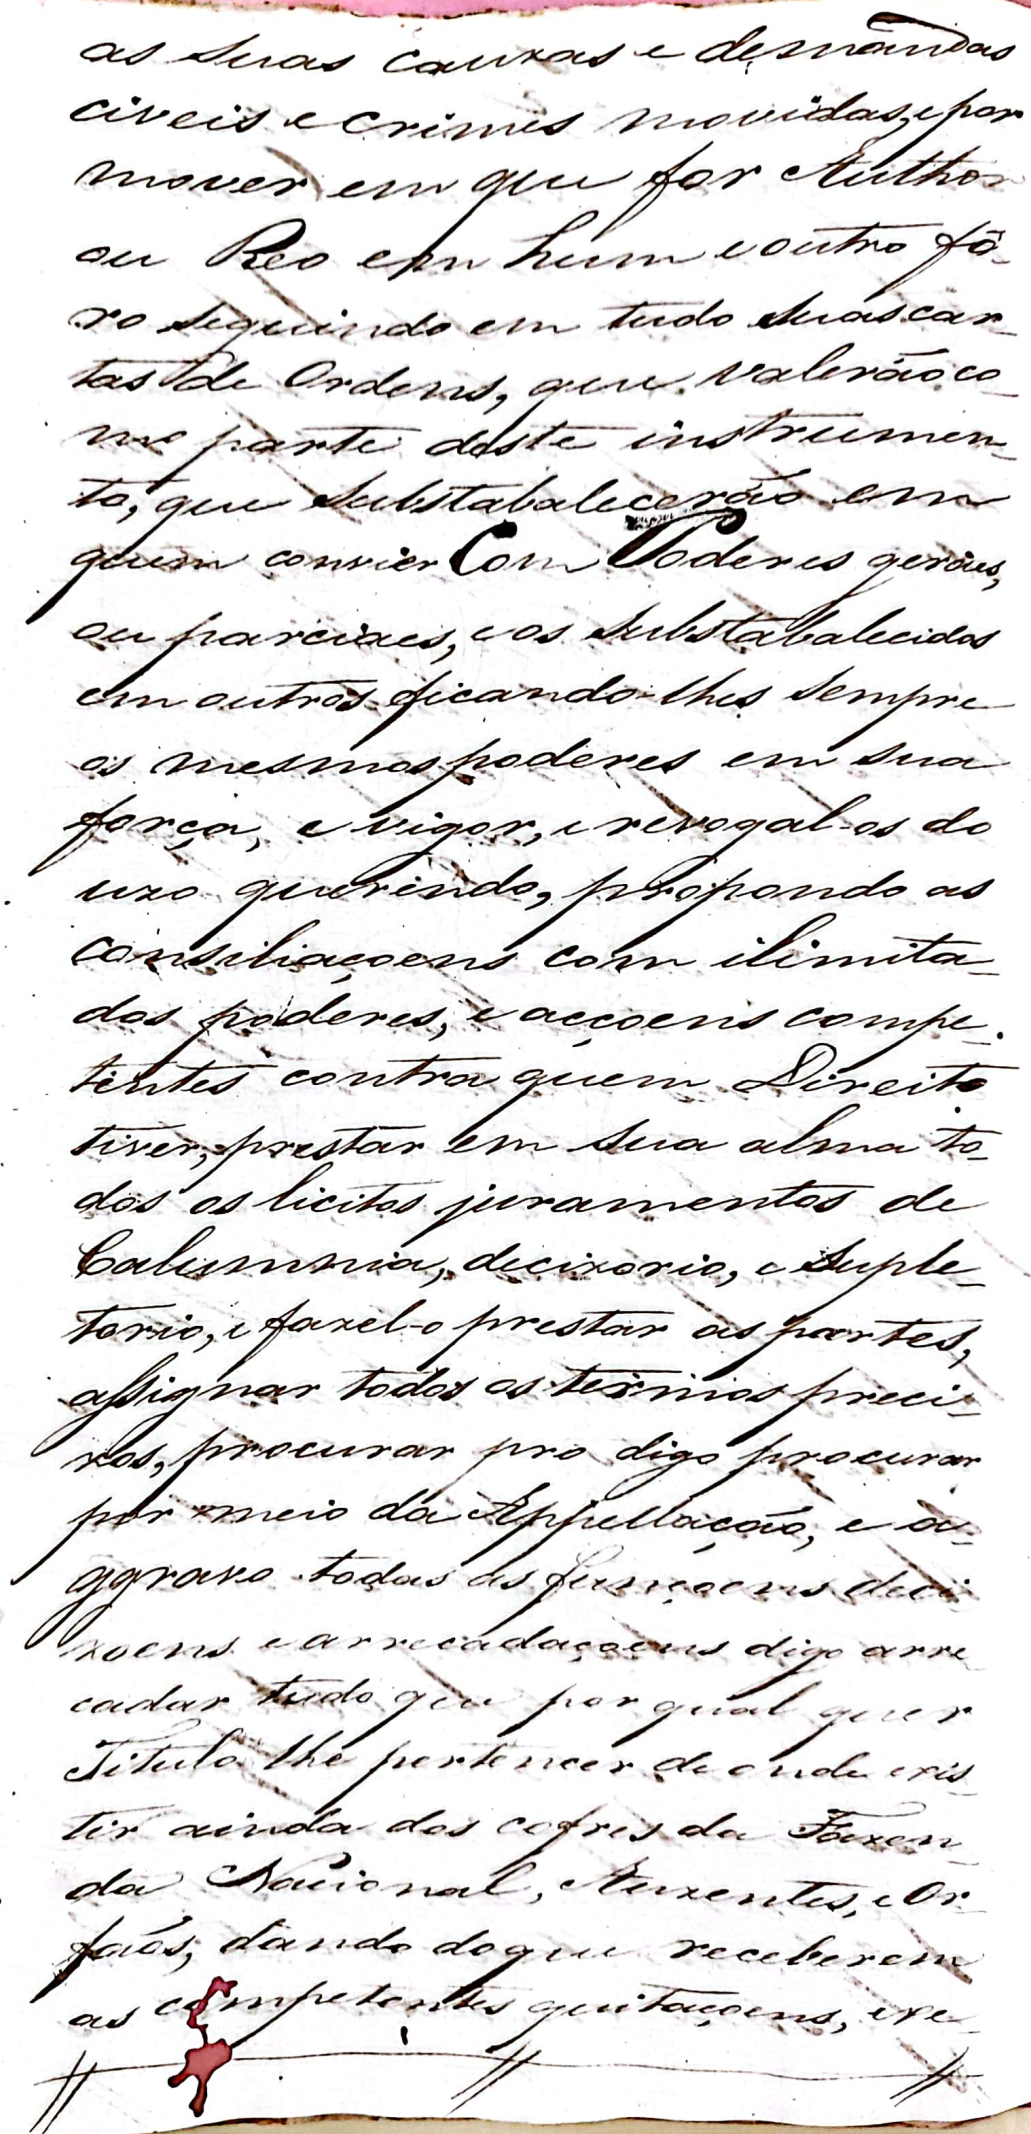 as suas cauzas e demandas
civeis e crimes movidas, e por
mover em que for Author
ou Reo em hum e outro fô-
ro seguindo em tudo suas car-
tas de Ordens, que valerão co-
mo parte deste instrumen-
to, que substabalecerão em
quem convier Com Poderes geraes,
ou parciaes, e os substabalecidos
em outros ficando-lhes sempre
os mesmos poderes em sua
força, e vigor, e revogal-os do
uzo querendo, propondo as
consiliaçoens com ilimita-
dos poderes, e acçoens compe-
tentes contra quem Direito
tiver, prestar em sua alma to-
dos os licitos juramentos de
Calumnia, decizorio, e suple-
torio, e fazel-o prestar as partes,
assignar todos os termos preci-
zos, procurar pro digo procurar
por meio da Appellação, e a-
ggravo todas as funçoens deci-
zoens e arrecadaçoens digo arre
cadar tudo que por qual quer
Titulo lhe pertencer de onde exis
tir ainda dos cofres da Fazen-
da Nacional, Auzentes, e Or-
faõs, dando do que receberem
as competentes quitaçoens, exe-